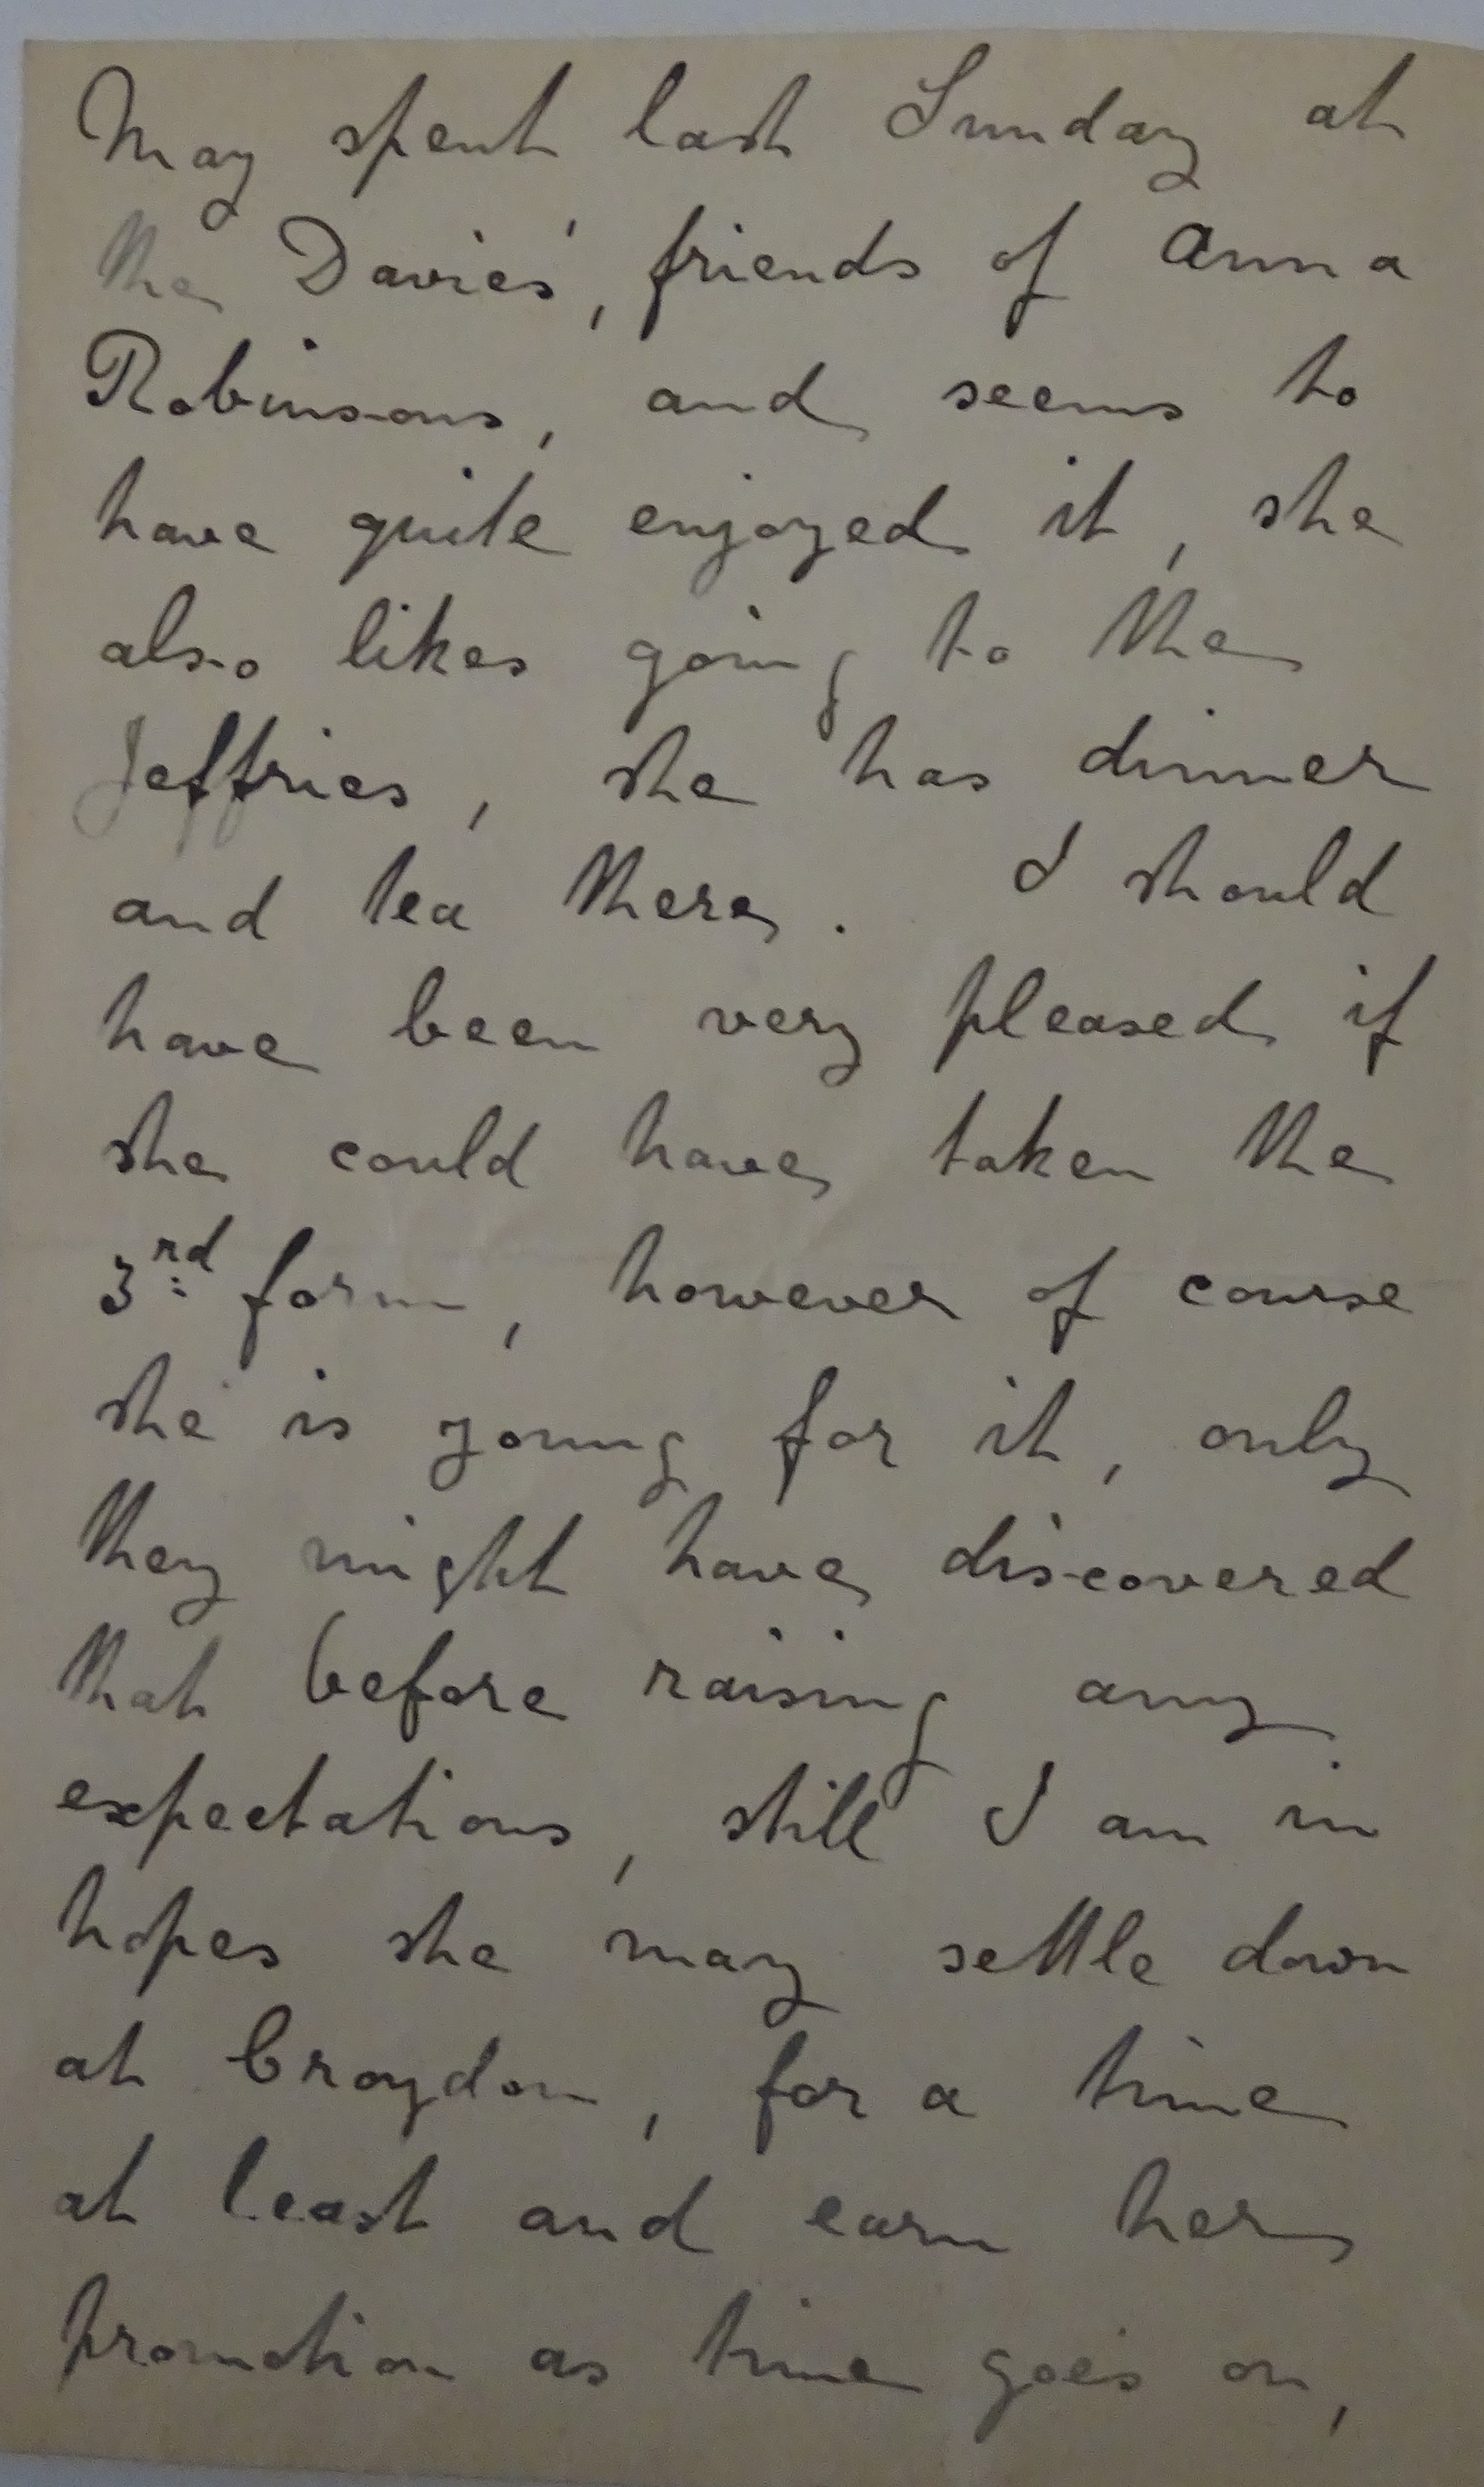 May spent last Sunday at
the Davies', friends of Anna
Robinsons, and seems to
have quite enjoyed it, she
also likes going to the
Jeffries, she has dinner
and tea there. I should
have been very pleased if
she could have taken the
3rd form, however of course
she is young for it, only
they might have discovered
that before raising any
expectations, still I am in
hopes she may settle down
at Croydon, for a time
at least and earn her
promotion as time goes on,